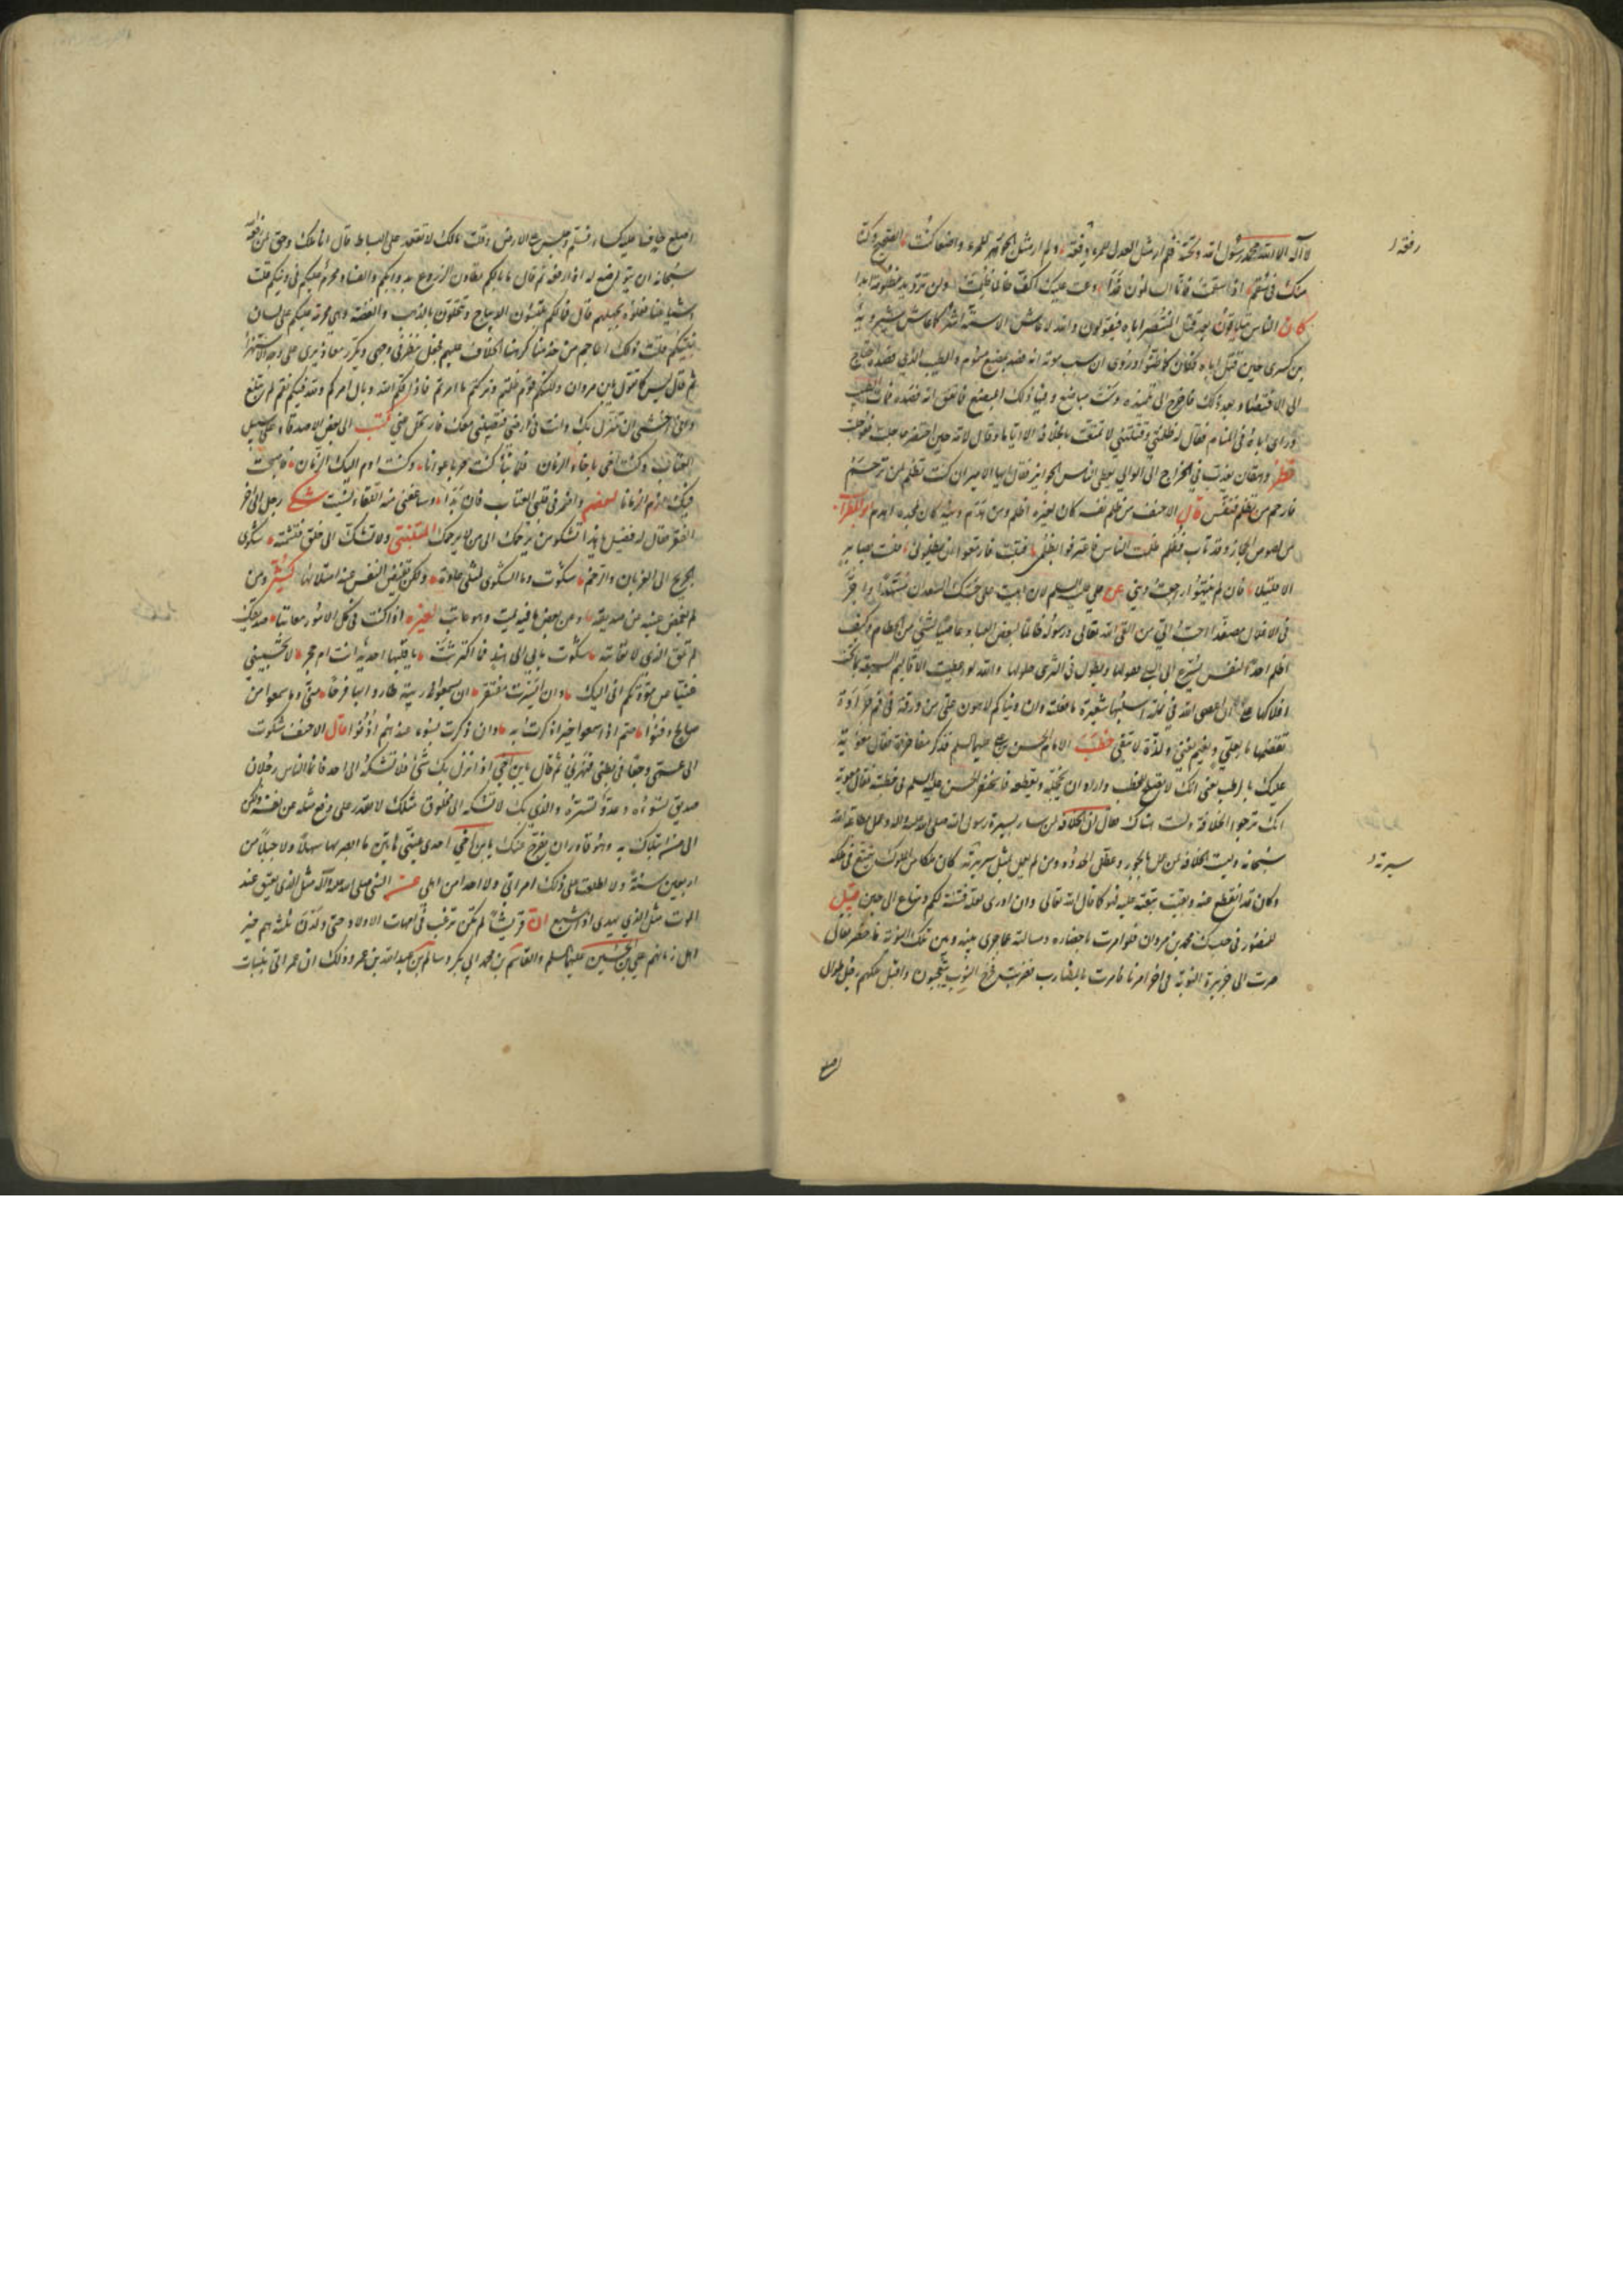 لا اله الا الله محمد رسول الله وتحته فلم ار مثل العدل للمرء رفعة ولم ار مثل الجور للمرء واضعا كنت الصحيح وكنا
منك في سقم اذا سقمت فانا السالمون غدا دعت عليك اكف طالما ظلمت ولن ترد يد مظلومة ابدا
كان الناس يقولون بعد قتل المنتصر اباه فيقولون والله لا عاش الا ستة اشهر كما عاش شيرويه
بن كسرى حين قتل اباه فكان كما ظنوا وروي ان سبب موته انه فصد بمبضع مسموم والطبيب الذي فصده احتاج
الى الافتصاد بعد ذلك فاخرج الى تلميذه دست مباضع وفيها ذلك المبضع فاتفق انه فصده فمات الطبيب
وراى اباه في المنام فقال له ظلمتني وقتلتني لا تمتعت بالخلافة الا اياما وقال لامه حين احتضر عاجلت فعوجلت
نظر دهقان يعذب في الخراج الى الوالي يعطي الناس الجوائز فقال ايها الامير ان كنت تظلم من ترحم
فارحم من تظلم فنفس قال الاحنف من ظلم نفسه كان لغيره اظلم ومن هدم دينه كان لمجده اهدم ابو المطراب
من لصوص الحجاز وقد تاب فظلم ظلمت الناس فاعترفوا بظلمي فتبت فازمعوا ان يظلموني فلست بصابر
الا قليلا فان لم ينتهوا راجعت ديني عن علي عليه السلام لان ابيت على حسك السعدان مسهدا واجر
في الاغلال مصفدا احب الي من القى الله تعالى ورسوله ظالما لبعض العباد وغاصبا لشيء من الحطام وكيف
اظلم احدا لنفس يسرع الى البلى قفولها ويطول في الثرى حلولها والله لو اعطيت الاقاليم السبعة بما تحت
افلاكها على ان اعصي الله في نملة اسلبها شعيرة ما فعلت وان دنياكم لاهون علي من ورقة في فم جرادة
تقضمها ما لعلي ونعيم يفنى ولذة لا تبقى خطب الامام الحسن بن علي عليهما السلام فذكر مفاخره فقال معوية
عليك بالرطب يعني انك لا تصلح للخطب واراد ان يخجله ويقطعه
انك ترجو الخلافة ولست هناك فقال ان الخلافة لمن سار بسيرة رسول الله صلى الله عليه واله وعمل بطاعة الله
سبحانه وليست الخلافة لمن عمل بالجور وعطل الحدود ومن لم يعمل بمثل سيرته كان ملكا من الملوك يتمتع في ملكه
وكان قد انقطع عنه وبقيت تبعته عليه فهو كما قال الله تعالى وان ادري لعله فتنة لكم ومتاع الى حين قيل
للمنصور في حبسك محمد بن مروان فلو امرت باحضاره ومسألته عما جرى بينه وبين ملك النوبة فاحضر فقال
صرت الى جزيرة النوبة في اخر امرنا فامرت بالمضارب فضربت فخرج النوب يتعجبون واقبل ملكهم رجل طوال
اصلع
رفعة
سيرته
اصلع حاف عليه كساء فسلم وجلس على الارض وقلت مالك لا تقعد على البساط قال انا ملك وحق لمن رفعه
سبحانه ان يتواضع له اذ رفعه ثم قال ما بالكم تطاون الزروع بدوابكم والفساد محرم عليكم في دينكم قلت
اشياعنا فعلوه بجهلهم قال فما لكم تلبسون الديباج وتحلون بالذهب والفضة وهي محرمة عليكم على لسان
نبيكم قلت ذلك اعاجم من خدمنا كرهنا الخلاف عليهم فجعل ينظر في وجهي ويكرر معاذيري على وجه الاستهزاء
ثم قال ليس كما تقول يا بن مروان ولكنكم قوم ظلمتم وتركتم ما امرتم فاذاقكم الله وبال امركم ولله فيكم نقم لم تبلغ
واني اخشى ان تنزل بك وانت في ارضي فتصيبني معك فارتحل عني كتب الى بعض الاصدقاء على سبيل
العتاب وكنت اخي باخاء الزمان فلما نبا كنت حربا عوانا وكنت اذم اليك الزمان فاصبحت
فيك اذم الزمانا لبعضهم واضمر في قلبي العتاب فان بدا وساعفني منه اللقاء نسيت شكى رجل الى اخر
الفقر فقال له فضيل يا هذا تشكو من يرحمك الى من لا يرحمك المتنبي ولا تشك الى خلق فتشمته شكوى
الجريح الى الغربان والرخم شكوت وما الشكوى لمثلي عادة ولكن تفيض النفس عند امتلائها كثير ومن
لم يغمض عينه عن صديقه وعن بعض ما فيه يمت وهو عاتب لغيره اذا كنت في كل الامور معاتبا صديقك
لم تلق الذي لا تعاتبه شكوت ما بي الى هند فما اكترثت يا قلبها احديد انت ام حجر لا تحسبيني
غنيا عن مودتكم اني اليك وان ايسرت مفتقر ان يسمعوا ريبة طاروا بها فرحا مني وما سمعوا من
صالح دفنوا صم اذا سمعوا خيرا ذكرت به وان ذكرت بسوء عندهم اذنوا قال الاحنف شكوت
الى عمي وجعا في بطني فنهرني ثم قال يا بن اخي اذا نزل بك شيء فلا تشكه الى احد فانما الناس رجلان
صديق تسوءه وعدو تسره والذي بك لا تشكه الى مخلوق مثلك لا يقدر على دفع مثله عن نفسه ولكن
الى من ابتلاك به وهو قادر ان يفرج عنك يا بن اخي احدى عيني هاتين ما ابصر بها سهلا ولا جبلا من
اربعين سنة وما اطلعت على ذلك امراتي ولا احدا من اهلي عن النبي صلى الله عليه واله مثل الذي يعتق عند
الموت مثل الذي يهدي اذا شبع ان قريشا لم تكن ترغب في امهات الاولاد حتى ولدن ثلثة هم خير
اهل زمانهم علي بن الحسين عليهما السلم والقاسم بن محمد بن ابي بكر وسالم بن عبد الله بن عمر وذلك ان عمر اتي ببنات